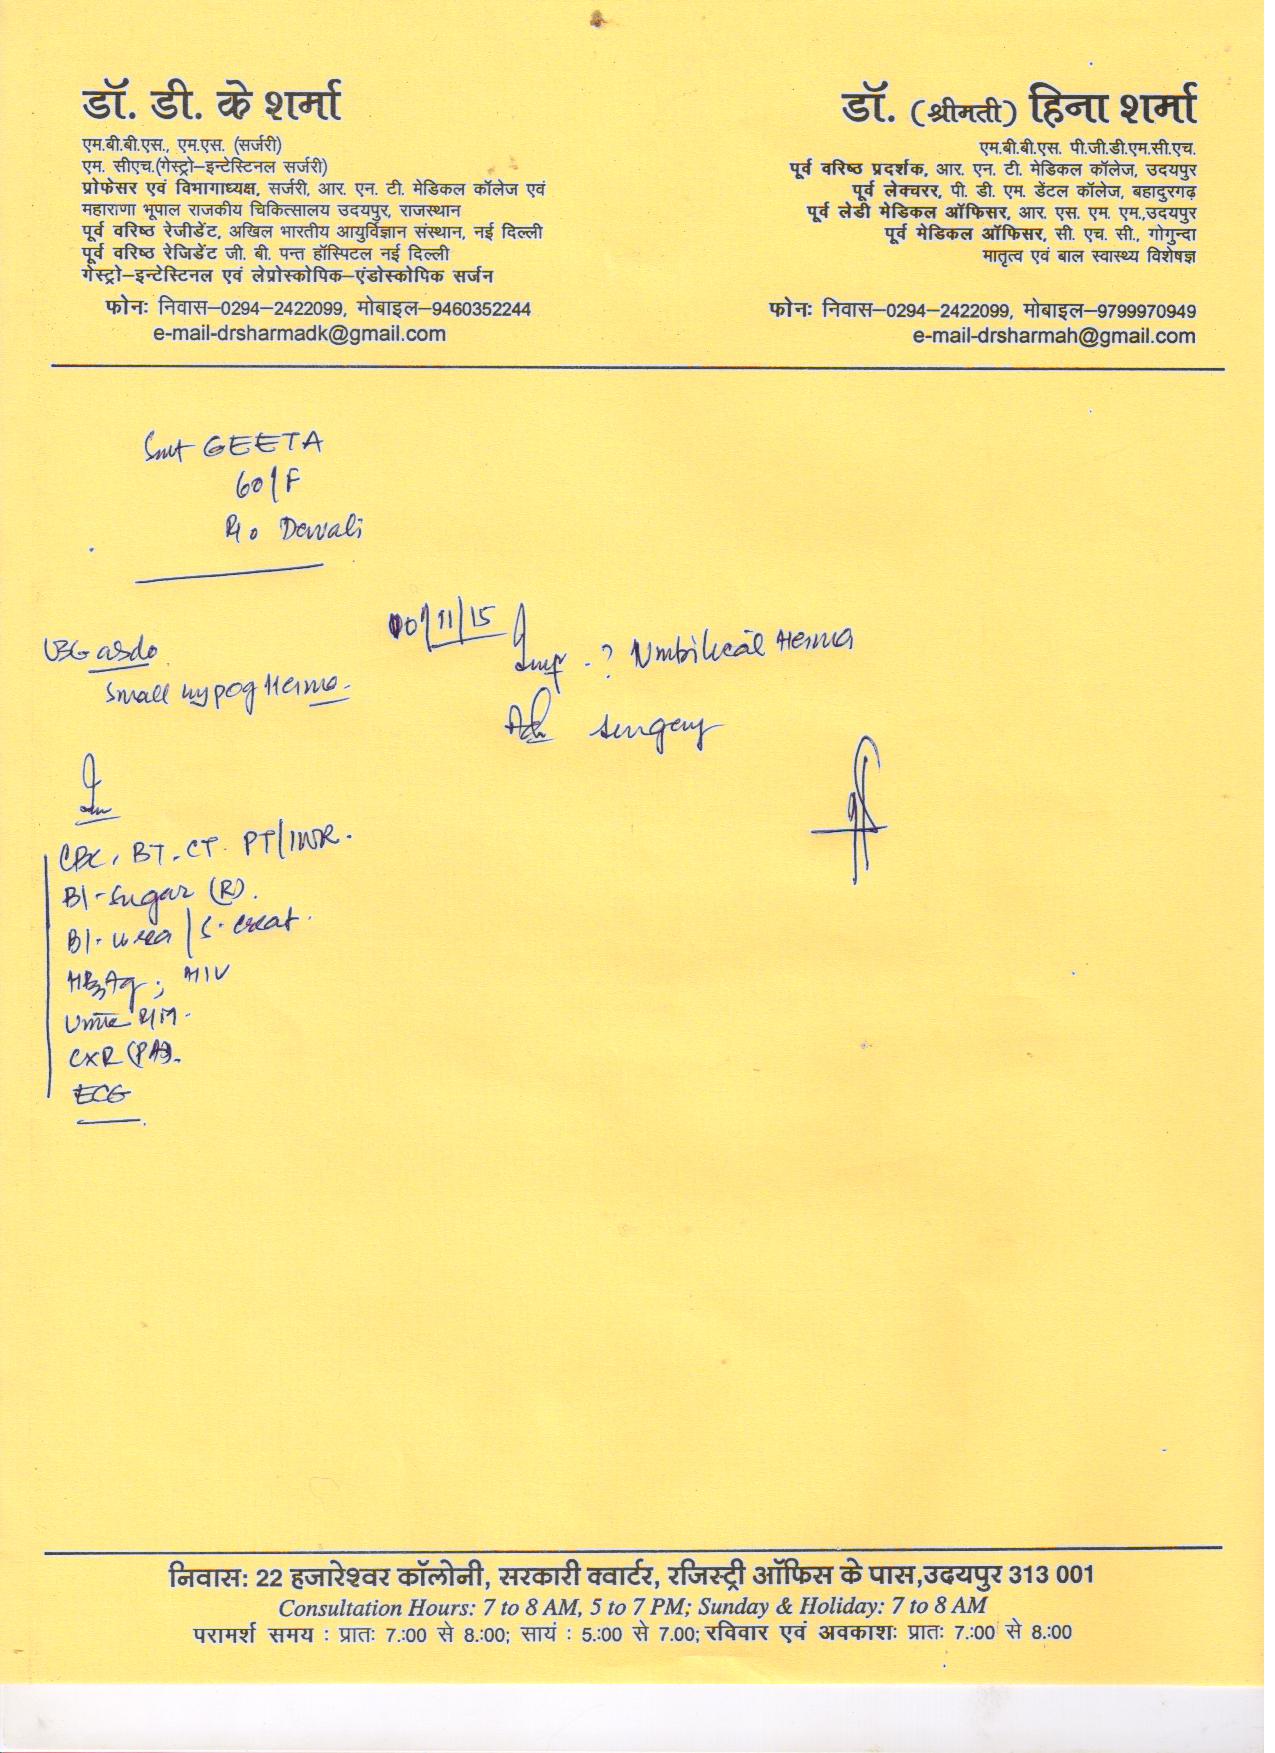 डॉ. डी. के शर्मा
एम.बी.बी.एस., एम.एस. (सर्जरी)
एम. सीएच.(गेस्ट्रो–इन्टेस्टिनल सर्जरी)
प्रोफेसर एवं विभागाध्यक्ष, सर्जरी, आर. एन. टी. मेडिकल कॉलेज एवं
महाराणा भूपाल राजकीय चिकित्सालय उदयपुर, राजस्थान
पूर्व वरिष्ठ रेजीडेंट, अखिल भारतीय आयुर्विज्ञान संस्थान, नई दिल्ली
पूर्व वरिष्ठ रेजिडेंट जी. बी. पन्त हॉस्पिटल नई दिल्ली
गेस्ट्रो–इन्टेस्टिनल एवं लेप्रोस्कोपिक–एंडोस्कोपिक सर्जन
फोनः निवास–0294–2422099, मोबाइल–9460352244
e-mail-drsharmadk@gmail.com
डॉ. (श्रीमती) हिना शर्मा
एम.बी.बी.एस. पी.जी.डी.एम.सी.एच.
पूर्व वरिष्ठ प्रदर्शक, आर. एन. टी. मेडिकल कॉलेज, उदयपुर
पूर्व लेक्चरर, पी. डी. एम. डेंटल कॉलेज, बहादुरगढ़
पूर्व लेडी मेडिकल ऑफिसर, आर. एस. एम. एम.,उदयपुर
पूर्व मेडिकल ऑफिसर, सी. एच. सी., गोगुन्दा
मातृत्व एवं बाल स्वास्थ्य विशेषज्ञ
फोनः निवास–0294–2422099, मोबाइल–9799970949
e-mail-drsharmah@gmail.com
Smt GEETA
60/F
R/o Dewali
/11/15
Imp - ? Umbilical Hernia
Adv surgery
USG abdo
Small hypog Hernia.
Inv
CBC, BT, CT. PT/INR.
Bl-sugar (R).
Bl. urea / S. creat.
HBsAg; HIV
Urine R/M.
CXR (PA).
ECG
निवासः 22 हजारेश्वर कॉलोनी, सरकारी क्वार्टर, रजिस्ट्री ऑफिस के पास,उदयपुर 313 001
Consultation Hours: 7 to 8 AM, 5 to 7 PM; Sunday & Holiday: 7 to 8 AM
परामर्श समय : प्रातः 7.:00 से 8.:00; सायं : 5.:00 से 7.00; रविवार एवं अवकाशः प्रातः 7.:00 से 8.:00